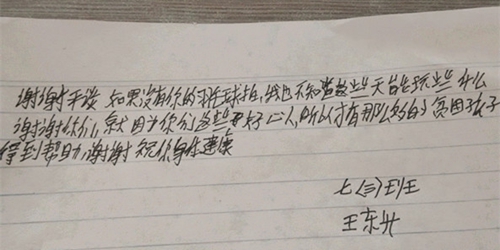 谢谢手谈 如果没有你的乒乓球拍,我也不知当故些天能玩些什么
谢谢你们,就因为你们这些好心人,所以才有那么多的贫困孩子
得到帮助,谢谢 祝你身体健康
七(三)班
王东升